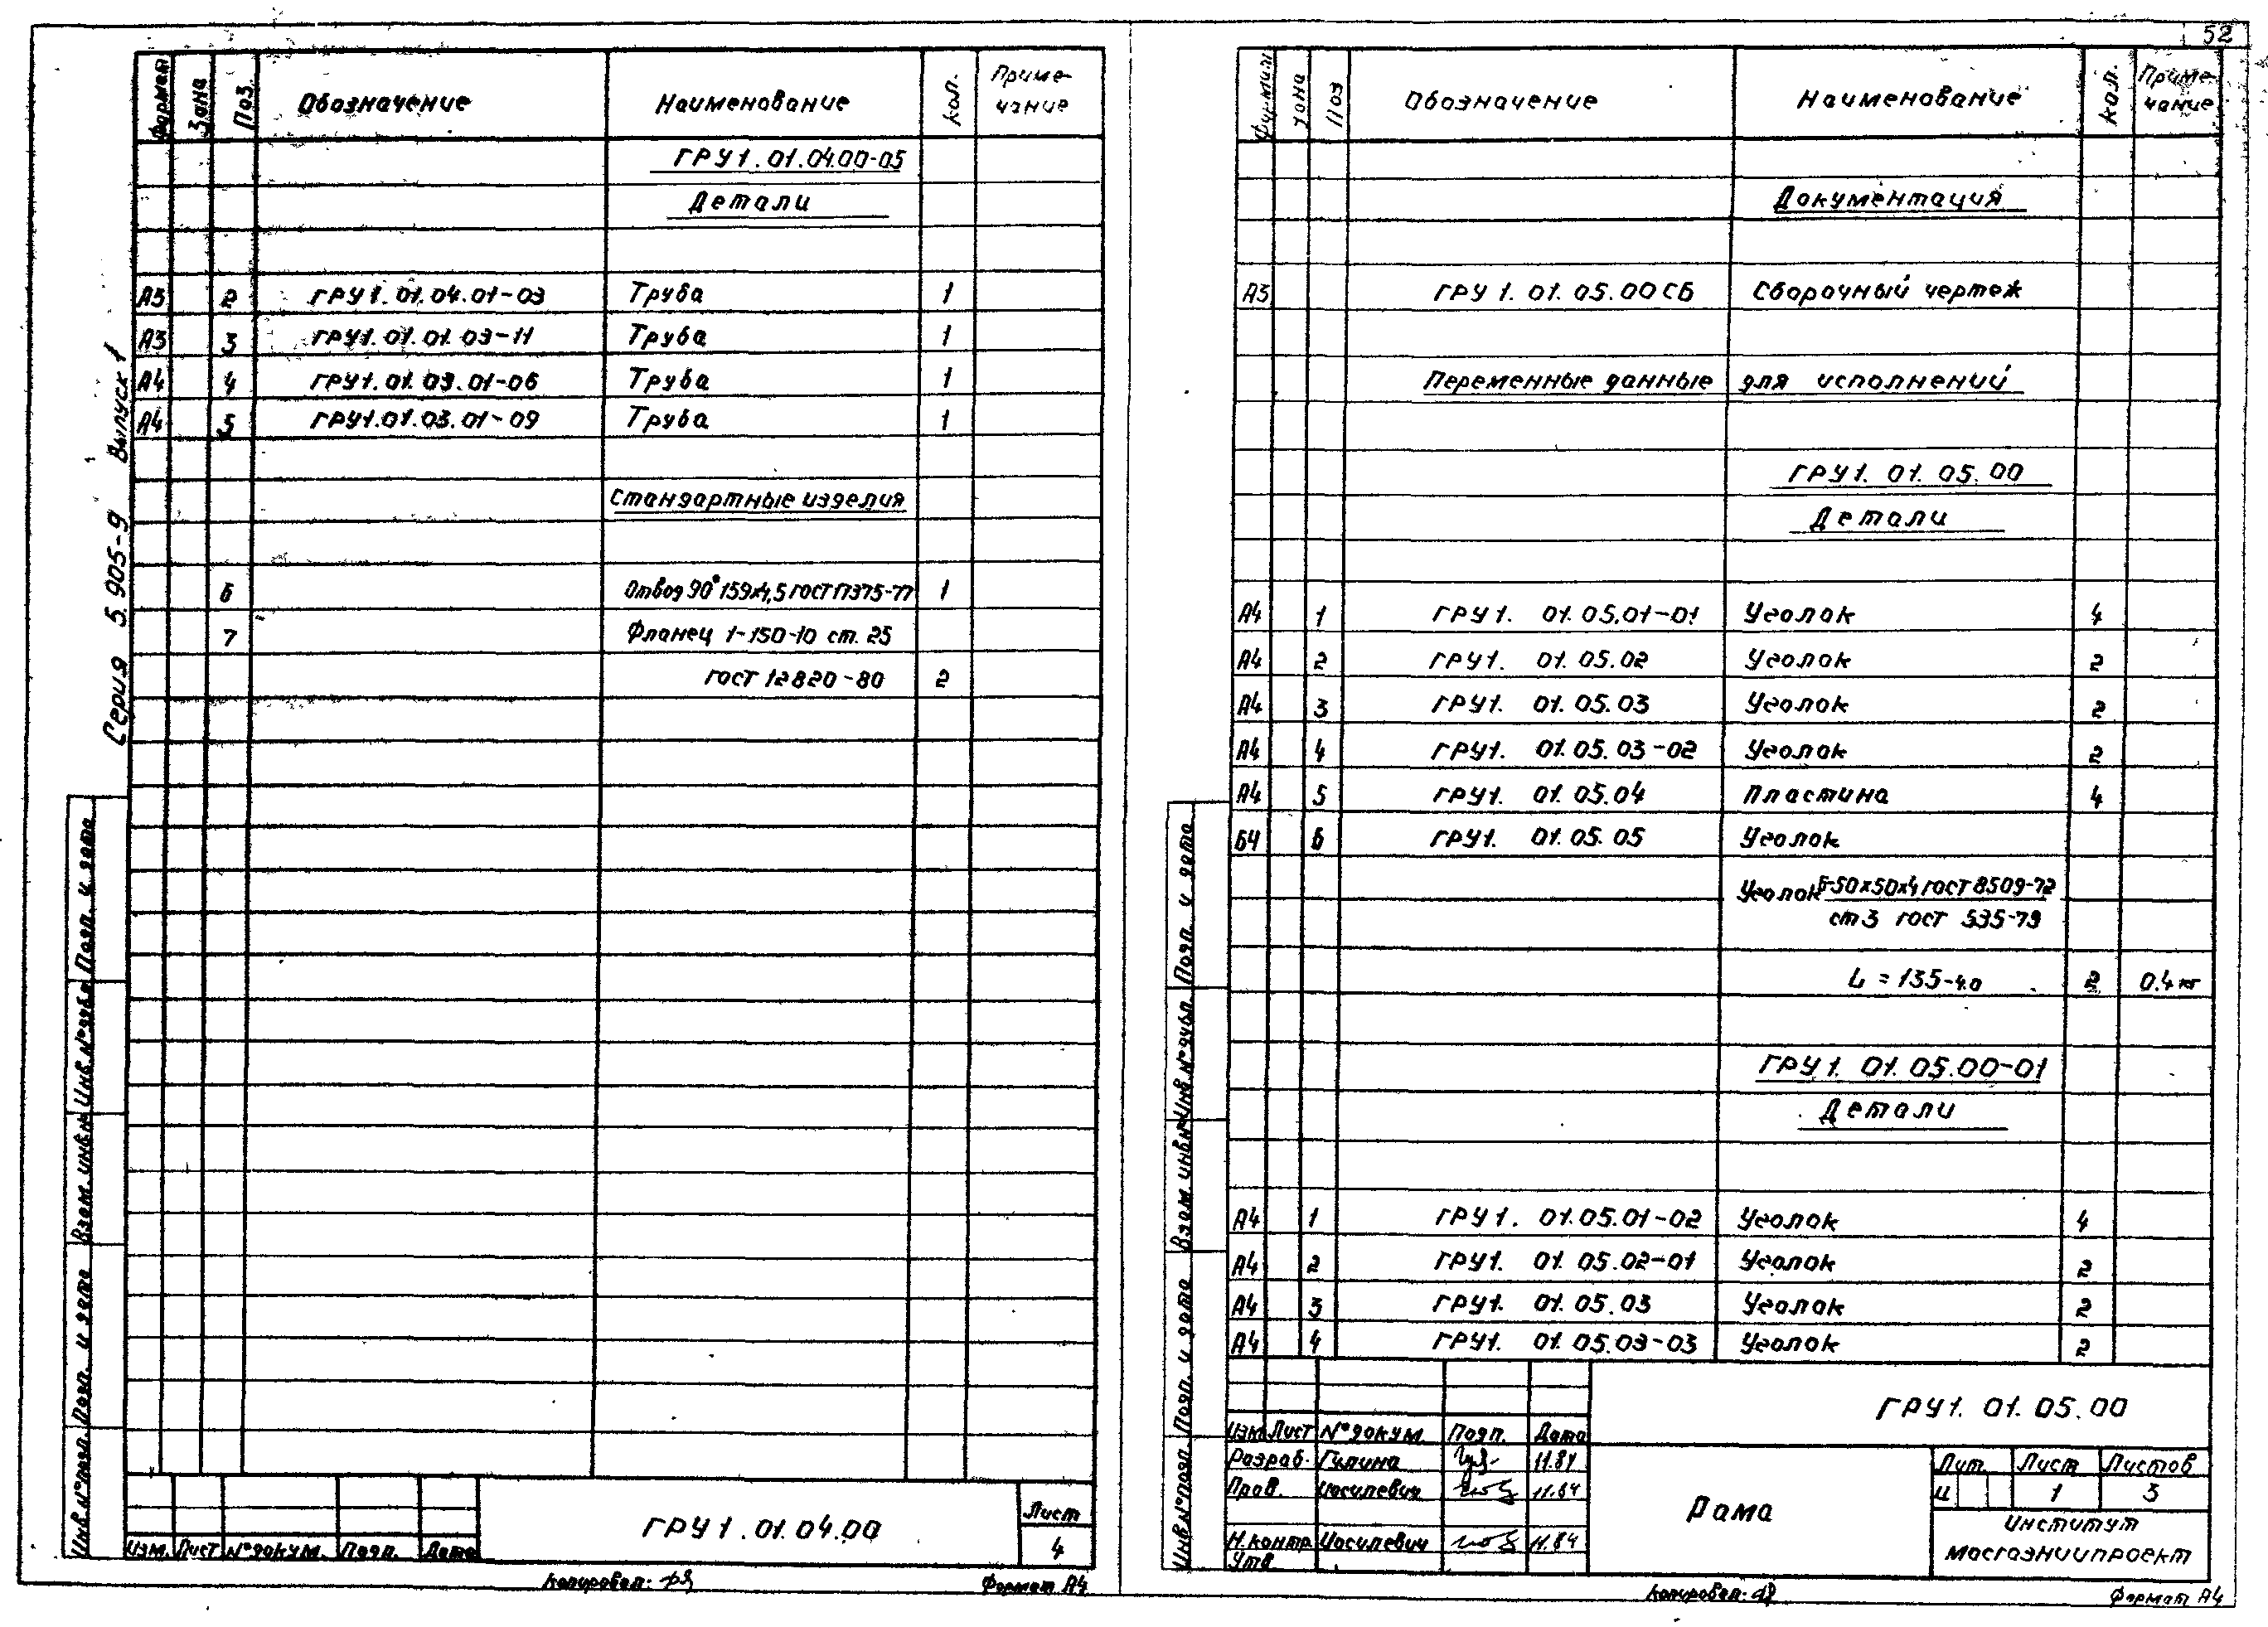 52
Серия 5.905-9 Выпуск 1
Формат Зона Поз. Обозначение Наименование Кол. Приме-
чание
ГРУ1.01.04.00-05
Детали
А3 2 ГРУ1.01.04.01-03 Труба 1
А3 3 ГРУ1.01.01.03-11 Труба 1
А4 4 ГРУ1.01.03.01-06 Труба 1
А4 5 ГРУ1.01.03.01-09 Труба 1
Стандартные изделия
6 Отвод 90° 159х4,5 ГОСТ 17375-77 1
7 Фланец 1-150-10 ст. 25
ГОСТ 12820-80 2
Инв.№подл. Подп. и дата Взам. инв.№ Инв.№дубл. Подп. и дата
Изм. Лист №докум. Подп. Дата
ГРУ1.01.04.00
Лист
4
Копировал:
Формат А4
Формат Зона Поз Обозначение Наименование Кол. Приме-
чание
Документация
А3 ГРУ1.01.05.00СБ Сборочный чертеж
Переменные данные для исполнений
ГРУ1.01.05.00
Детали
А4 1 ГРУ1.01.05.01-01 Уголок 4
А4 2 ГРУ1.01.05.02 Уголок 2
А4 3 ГРУ1.01.05.03 Уголок 2
А4 4 ГРУ1.01.05.03-02 Уголок 2
А4 5 ГРУ1.01.05.04 Пластина 4
БЧ 6 ГРУ1.01.05.05 Уголок
Уголок Б-50х50х4 ГОСТ 8509-72
ст3 ГОСТ 535-79
L = 135-4.0 2 0.4кг
ГРУ1.01.05.00-01
Детали
А4 1 ГРУ1.01.05.01-02 Уголок 4
А4 2 ГРУ1.01.05.02-01 Уголок 2
А4 3 ГРУ1.01.05.03 Уголок 2
А4 4 ГРУ1.01.05.03-03 Уголок 2
Инв.№подл. Подп. и дата Взам. инв.№ Инв.№дубл. Подп. и дата
ГРУ1.01.05.00
Изм. Лист №докум. Подп. Дата
Разраб. Гилина 11.84
Пров. Иосилевич 11.84
Н.контр. Иосилевич 11.84
Утв.
Рама
Лит. Лист Листов
И 1 3
Институт
Мосгазниипроект
Копировал:
Формат А4